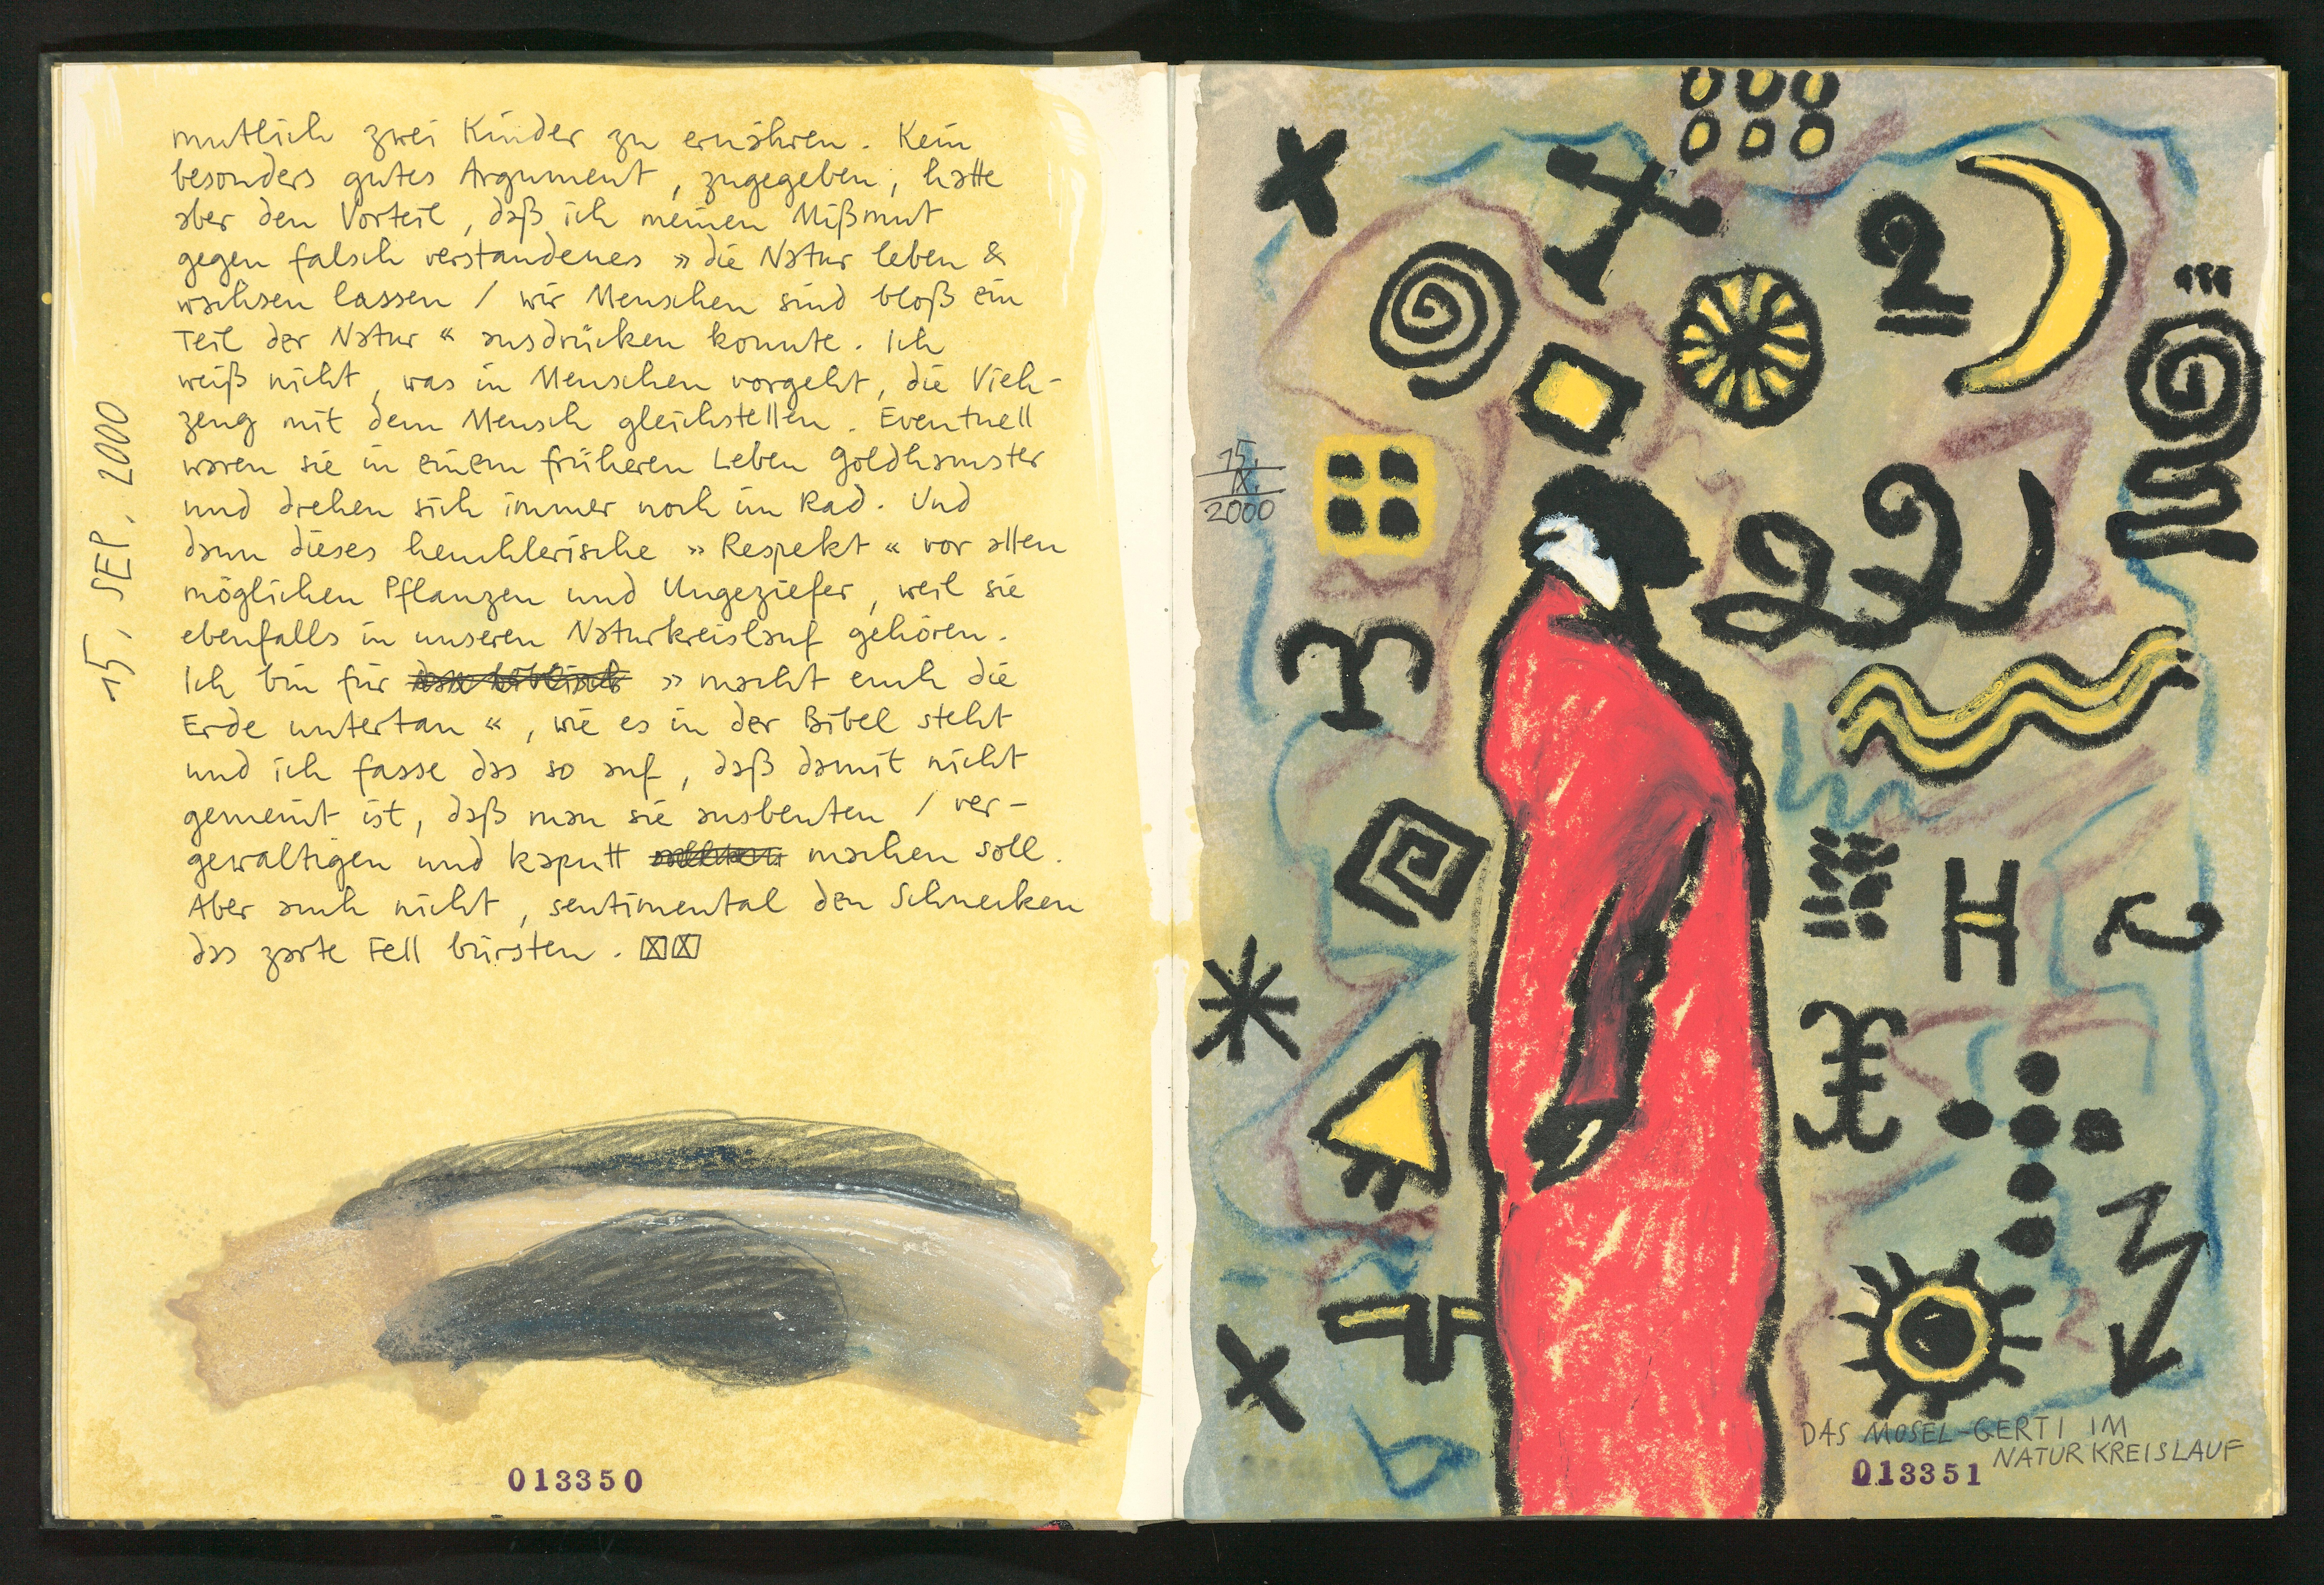 mutlich zwei Kinder zu ernähren. Kein
besonders gutes Argument, zugegeben, hatte
aber den Vorteil, daß ich meinen Mißmut
gegen falsch verstandenes »die Natur leben &
wachsen lassen / wir Menschen sind bloß ein
Teil der Natur« ausdrücken konnte. Ich
weiß nicht, was in Menschen vorgeht, die Vieh-
zeug mit dem Mensch gleichstellen. Eventuell
waren sie in einem früheren Leben Goldhamster
und drehen sich immer noch im Rad. Und
dann dieses heuchlerische »Respekt« vor allen
möglichen Pflanzen und Ungeziefer, weil sie
ebenfalls in unseren Naturkreislauf gehören.
Ich bin für »macht euch die
Erde untertan«, wie es in der Bibel steht
und ich fasse das so auf, daß damit nicht
gemeint ist, daß man sie ausbeuten / ver-
gewaltigen und kaputt machen soll.
Aber auch nicht, sentimental den Schnecken
das zarte Fell bürsten.
15. SEP. 2000
013350
15.
IX.
2000
DAS MOSEL-GERTI IM
NATURKREISLAUF
013351